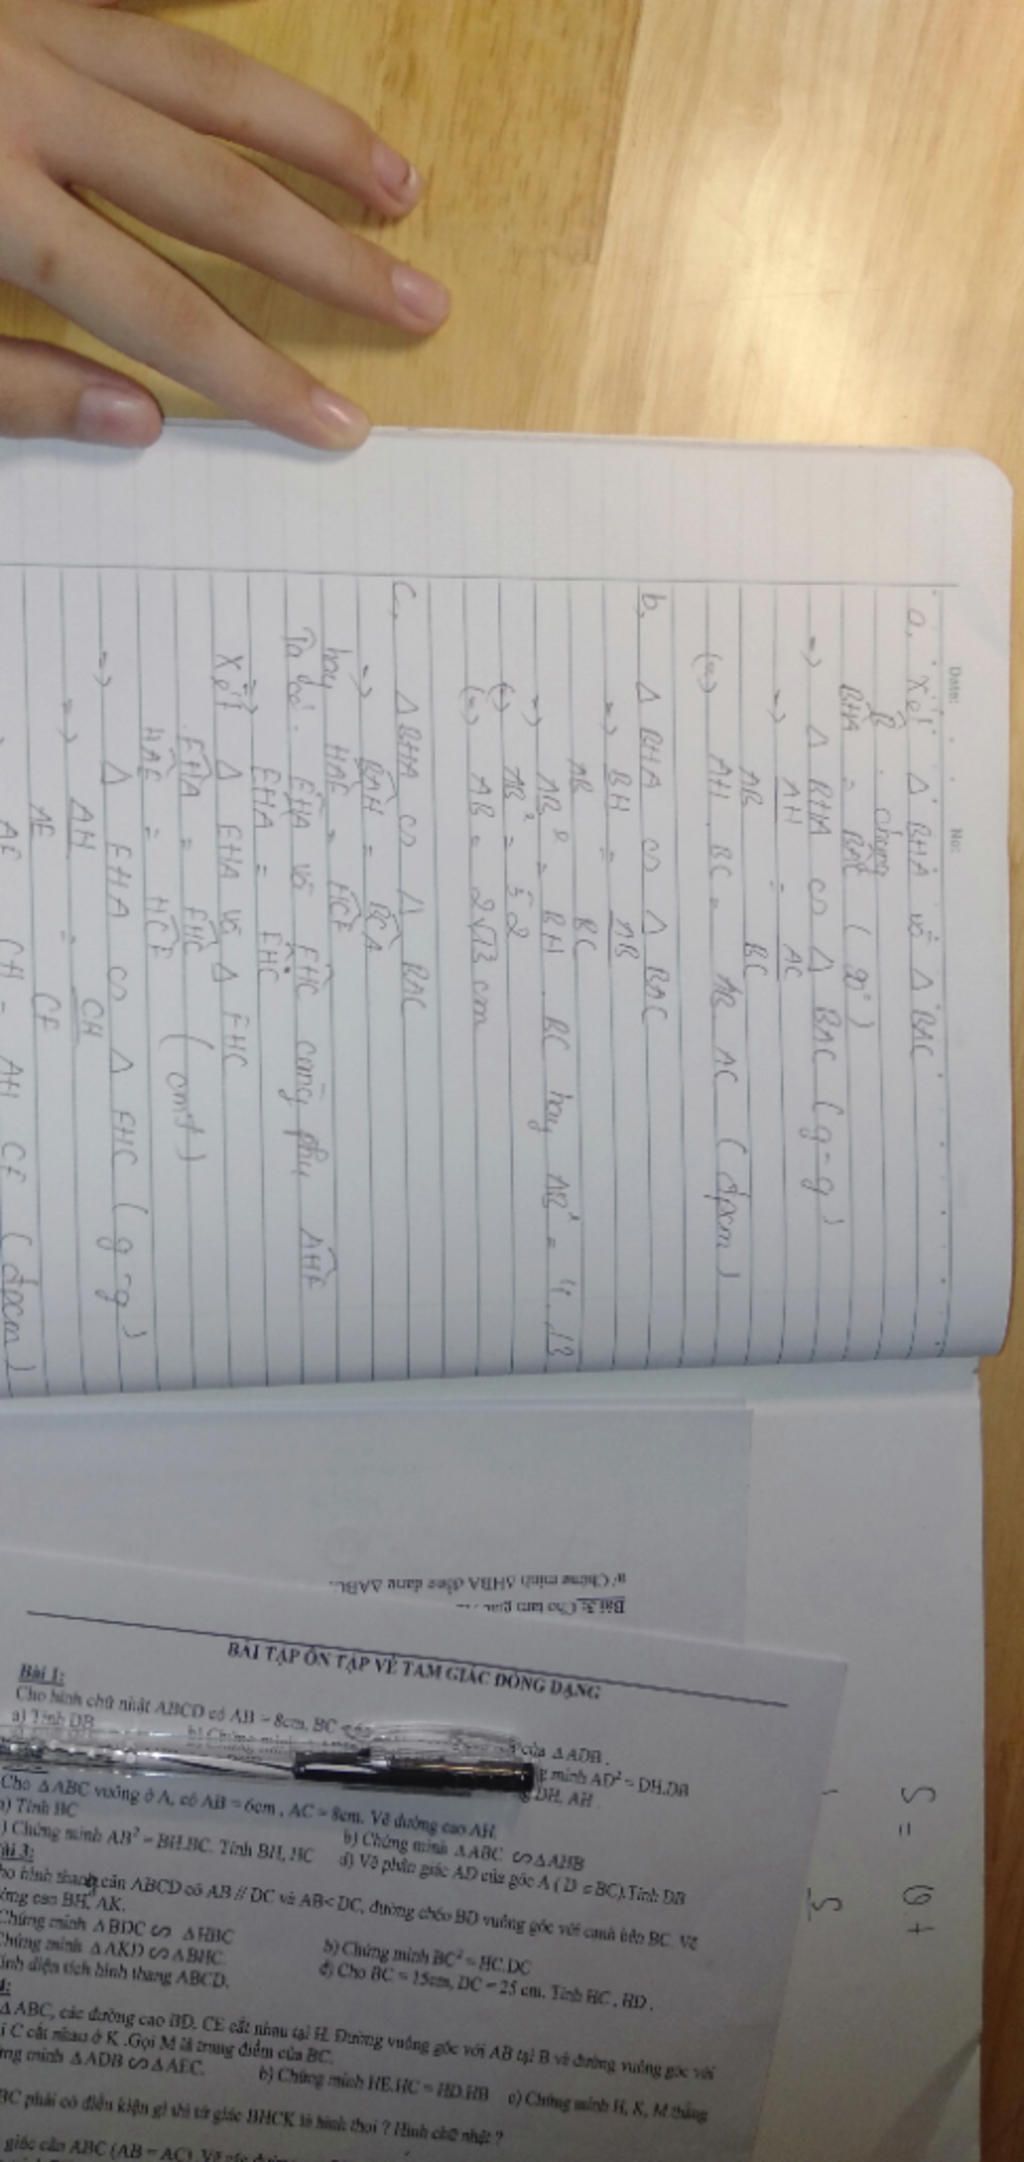 Date:
No:
a, Xét Δ BHA và Δ BAC
B̂ chung
BHA = BAC (90°)
=> Δ BHA ∽ Δ BAC (g-g)
=> AH/AB = AC/BC
(=) AH . BC = AB . AC (đpcm)
b, Δ BHA ∽ Δ BAC
=> BH/AB = AB/BC
=> AB² = BH . BC hay AB² = 4 . 13
(=) AB² = 52
(=) AB = 2√13 cm
c, Δ BHA ∽ Δ BAC
=> BAH = BCA
hay HAE = HCF
Ta có: EHA và FHC cùng phụ AHF
=> EHA = FHC
Xét Δ EHA và Δ FHC
EHA = FHC (cmt)
HAE = HCF
=> Δ EHA ∽ Δ FHC (g-g)
=> AH/AE = CH/CF
AE CH = AH CF (đpcm)
S =
S
Bài 3: Cho tam giác
Chứng minh ΔHBA đồng dạng ΔABC.
BÀI TẬP ÔN TẬP VỀ TAM GIÁC ĐỒNG DẠNG
Bài 1:
Cho hình chữ nhật ABCD có AB = 8cm, BC của ΔADB .
a) Tính DB minh AD² = DH.DB
DH, AH .
Cho ΔABC vuông ở A, có AB = 6cm , AC = 8cm. Vẽ đường cao AH.
) Tính BC b) Chứng minh ΔABC ∽ ΔAHB
) Chứng minh AB² = BH.BC. Tính BH, HC d) Vẽ phân giác AD của góc A ( D ∈ BC).Tính DB
ài 3:
ho hình thang cân ABCD có AB // DC và AB< DC, đường chéo BD vuông góc với cạnh bên BC. Vẽ
ờng cao BH, AK.
Chứng minh ΔBDC ∽ ΔHBC b) Chứng minh BC² = HC.DC
hứng minh ΔAKD ∽ ΔBHC. d) Cho BC = 15cm, DC = 25 cm. Tính HC , HD .
ính diện tích hình thang ABCD.
4:
ΔABC, các đường cao BD, CE cắt nhau tại H. Đường vuông góc với AB tại B và đường vuông góc với
i C cắt nhau ở K .Gọi M là trung điểm của BC.
ng minh ΔADB ∽ ΔAEC. b) Chứng minh HE.HC = HD.HB c) Chứng minh H, K, M thẳng
BC phải có điều kiện gì thì tứ giác BHCK là hình thoi ? Hình chữ nhật ?
giác cân ABC (AB = AC). Vẽ các